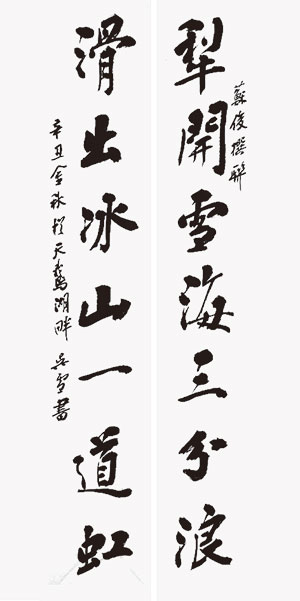 犁開雪海三分浪
蘇俊撰聯
滑出冰山一道虹
辛丑金秋於天鵝湖畔吳雪書